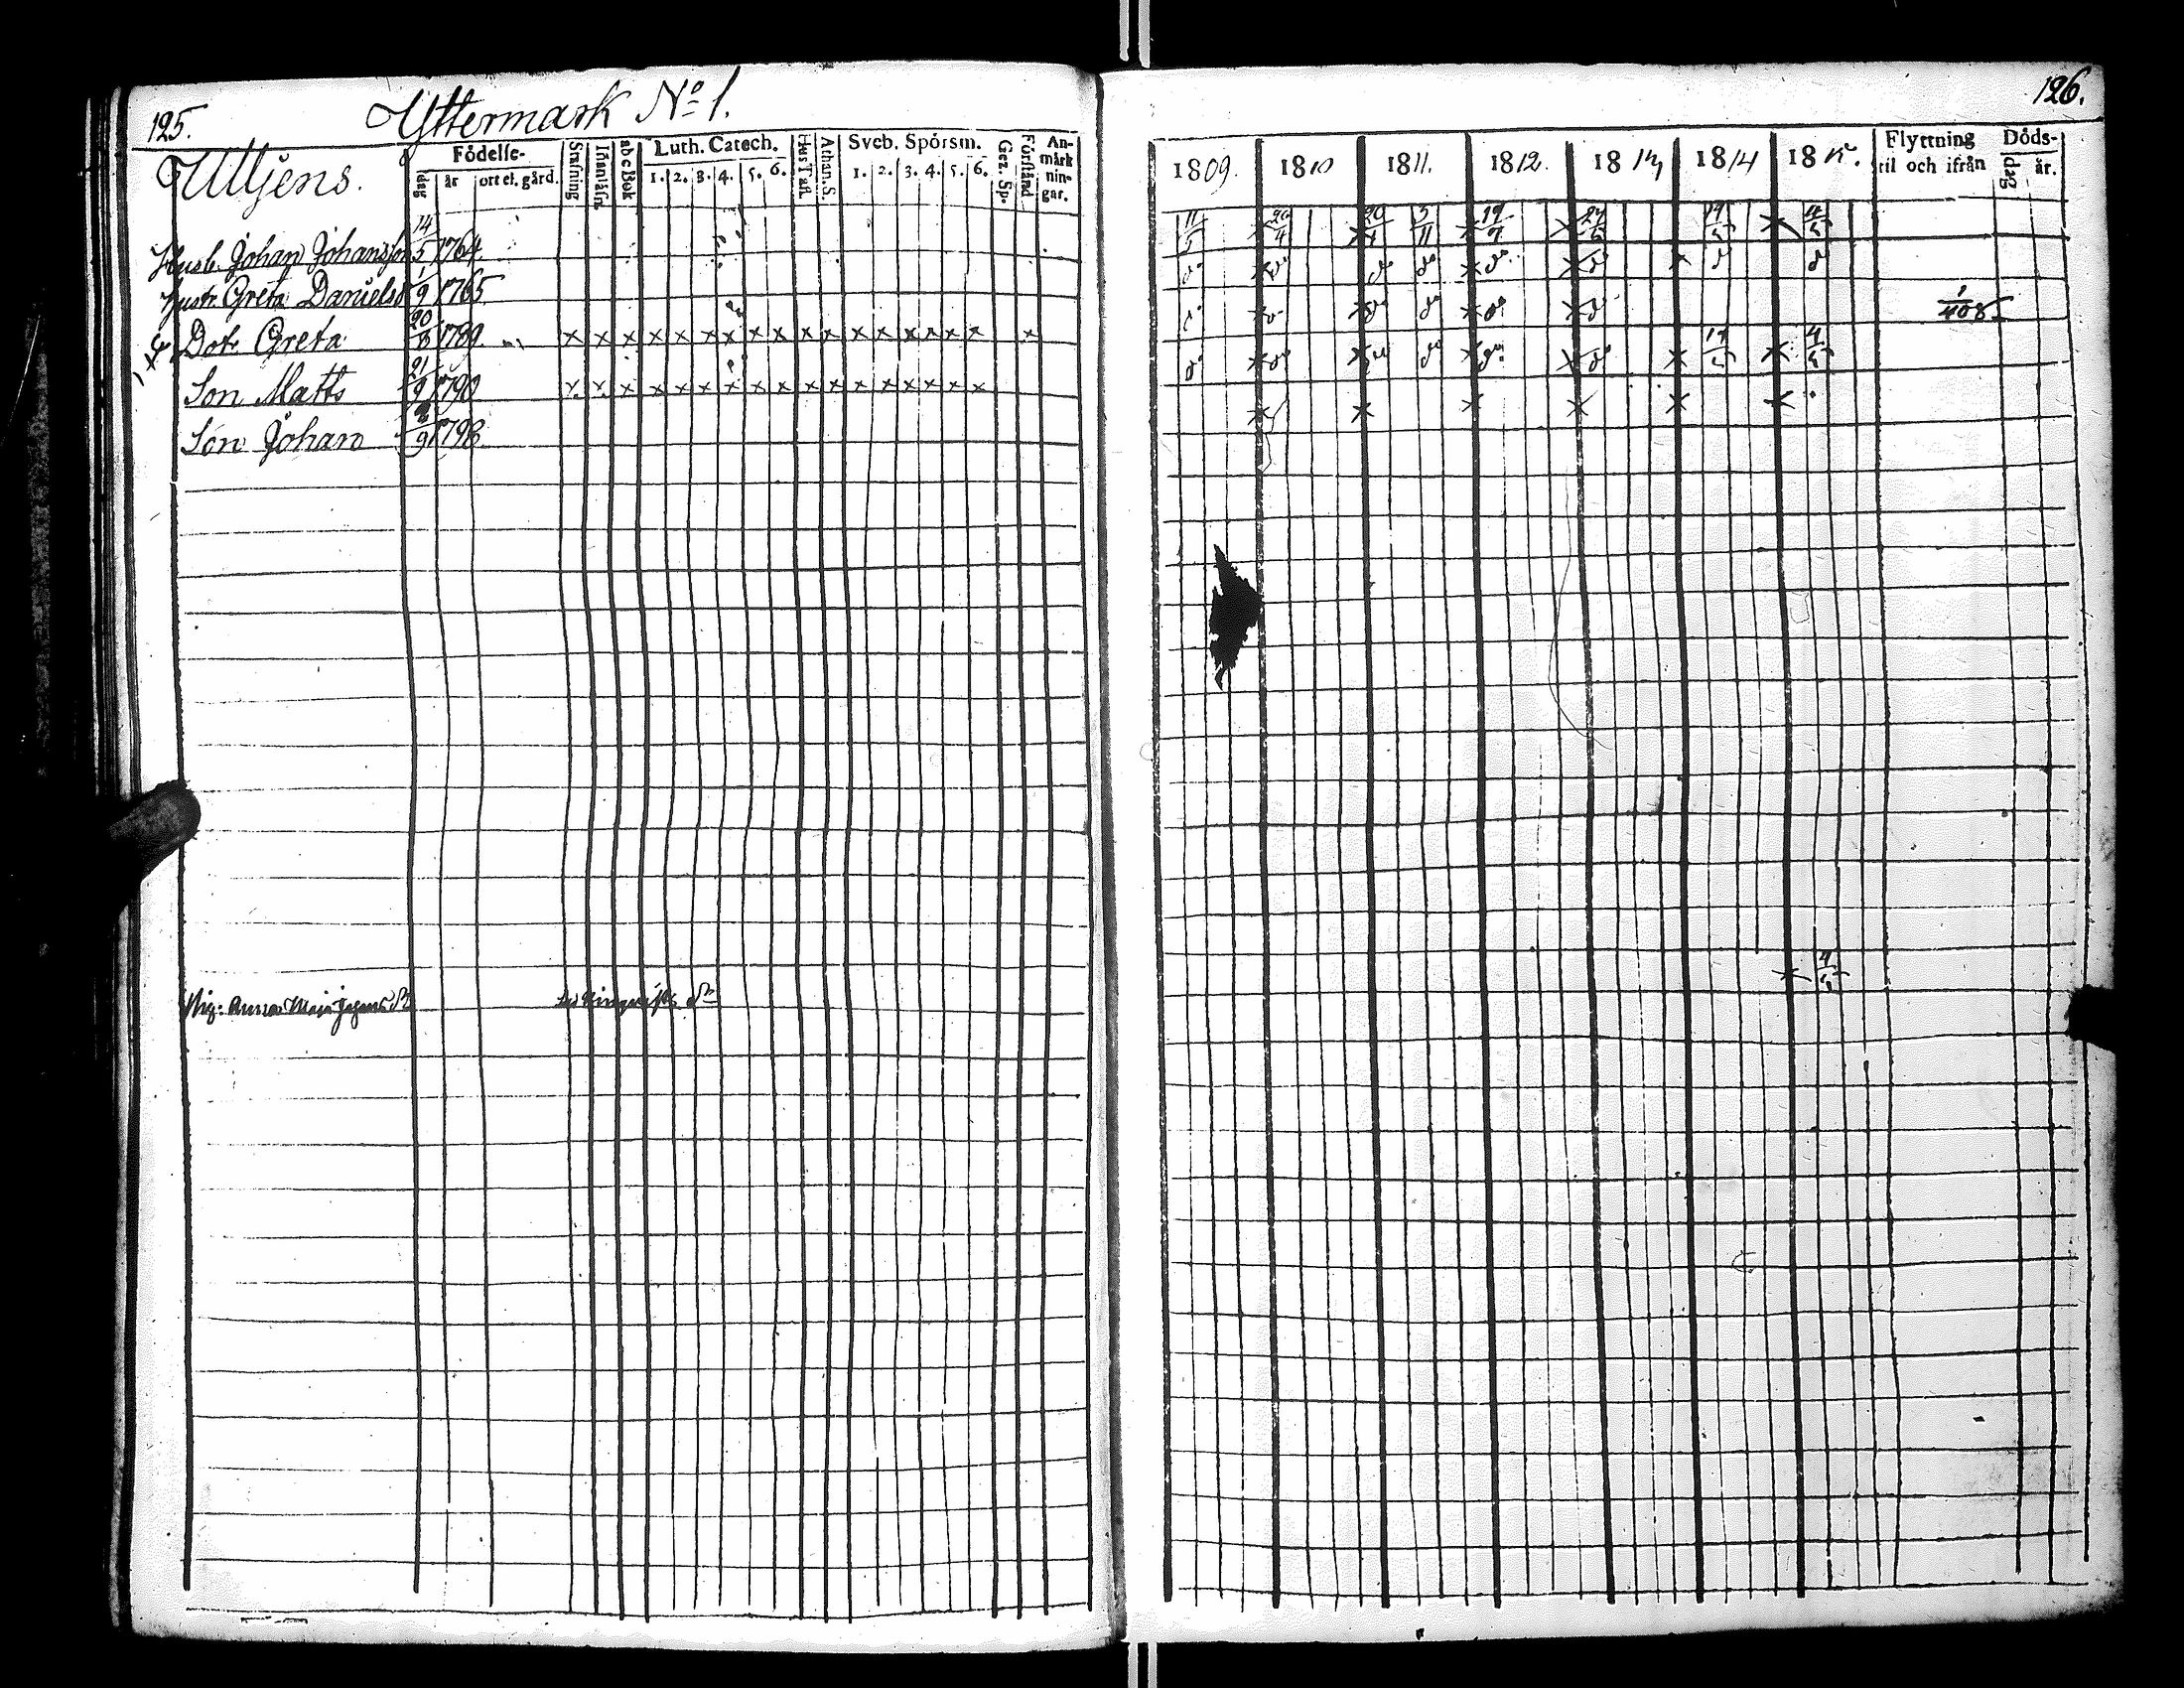 125.
Yttermark No 1.
126.
Ulljens.
Födelse-
dag
år
ort el. gård.
Stafning
Innanläsn.
abc Bok
Luth. Catech.
1. 2. 3. 4. 5. 6.
Hus Tafl.
Athan. S.
Sveb. Spörsm.
1. 2. 3. 4. 5. 6.
Gez. Sp.
Förstånd
An-
märk
nin-
gar.
1809. 1810 1811. 1812. 1813 1814 1815.
Flyttning
til och ifrån
Döds-
dag
år.
Husb. Johan Johansson 14/5 1764 11/5 20/4 20/4 3/11 19/4 24/5 19/5 4/5
Hustr. Greta Danielsd 1/9 1765 do do do do do d d d
Dotr Greta 20/8 1789 x x x x x x x x x x x x x x x x x x
Son Matts 21/9 1790 x x x x x x x x x x x x x x x x x 19/5 4/5
Son Johan 2/9 1798
Pig: Anna Maja 4/5